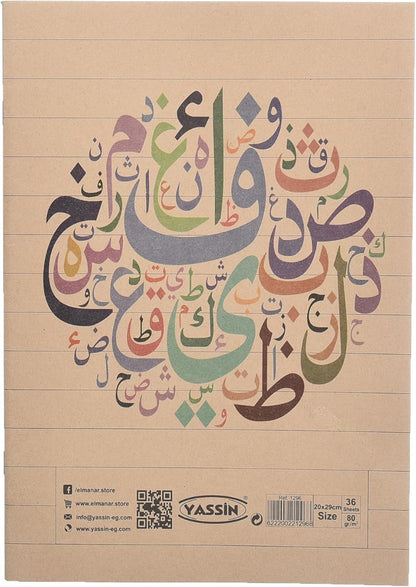 و ض ئ د
ق ذ ث و ف ا ه غ م ن
ر م ص غ د ظ ن ع ا ث ا ر ف خ
ك خ ذ ب ش ي ط ي ت د س ة ت و خ
ج ج ز ل ت ب ي ك م ق ط ع ض ئ
ز ا ظ ت ا س ي ش ض ح ل
و
/elmanar.store
www.elmanar.store
info@yassin-eg.com
www.yassin-eg.com
YASSIN
®
Ref: 1296
6222002212968
20x29cm
Size
36
Sheets
80
gr/m²